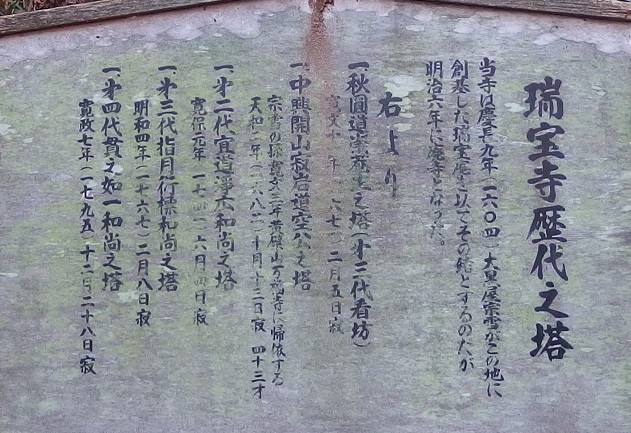 瑞宝寺歴代之塔
当寺は慶長九年(一六〇四)大黒屋宗雪がこの地に
創基した瑞宝庵を以てその始とするのだが
明治六年に廃寺となった。
右より
一、秋圓道 之塔(才三代看坊)
寛文十 年 六七 二月五日寂
一、中興開山寂岩道空公之塔
宗雪の孫 文二年黄檗山万福寺に帰依する
天和二年(一六八二)十月十三日寂 四十三才
一、才二代宜道淨本和尚之塔
寛保元年 一七四一 六月四日寂
一、才三代指月行標和尚之塔
明和四年(一七六七)二月八日寂
一、才四代貫之如一和尚之塔
寛政七年(一七九五)十二月二十八日寂